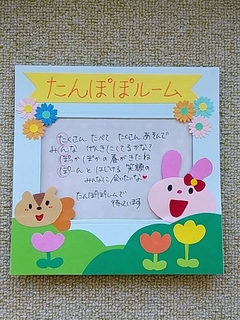 たんぽぽルーム
たくさん たべて たくさん あそんで
みんな げんきにしてるかな?
ぽっかぽかの春がきたね
ぽーんと はじける 笑顔の
みんなに 会いたいな♥
たんぽぽルームで
待っています